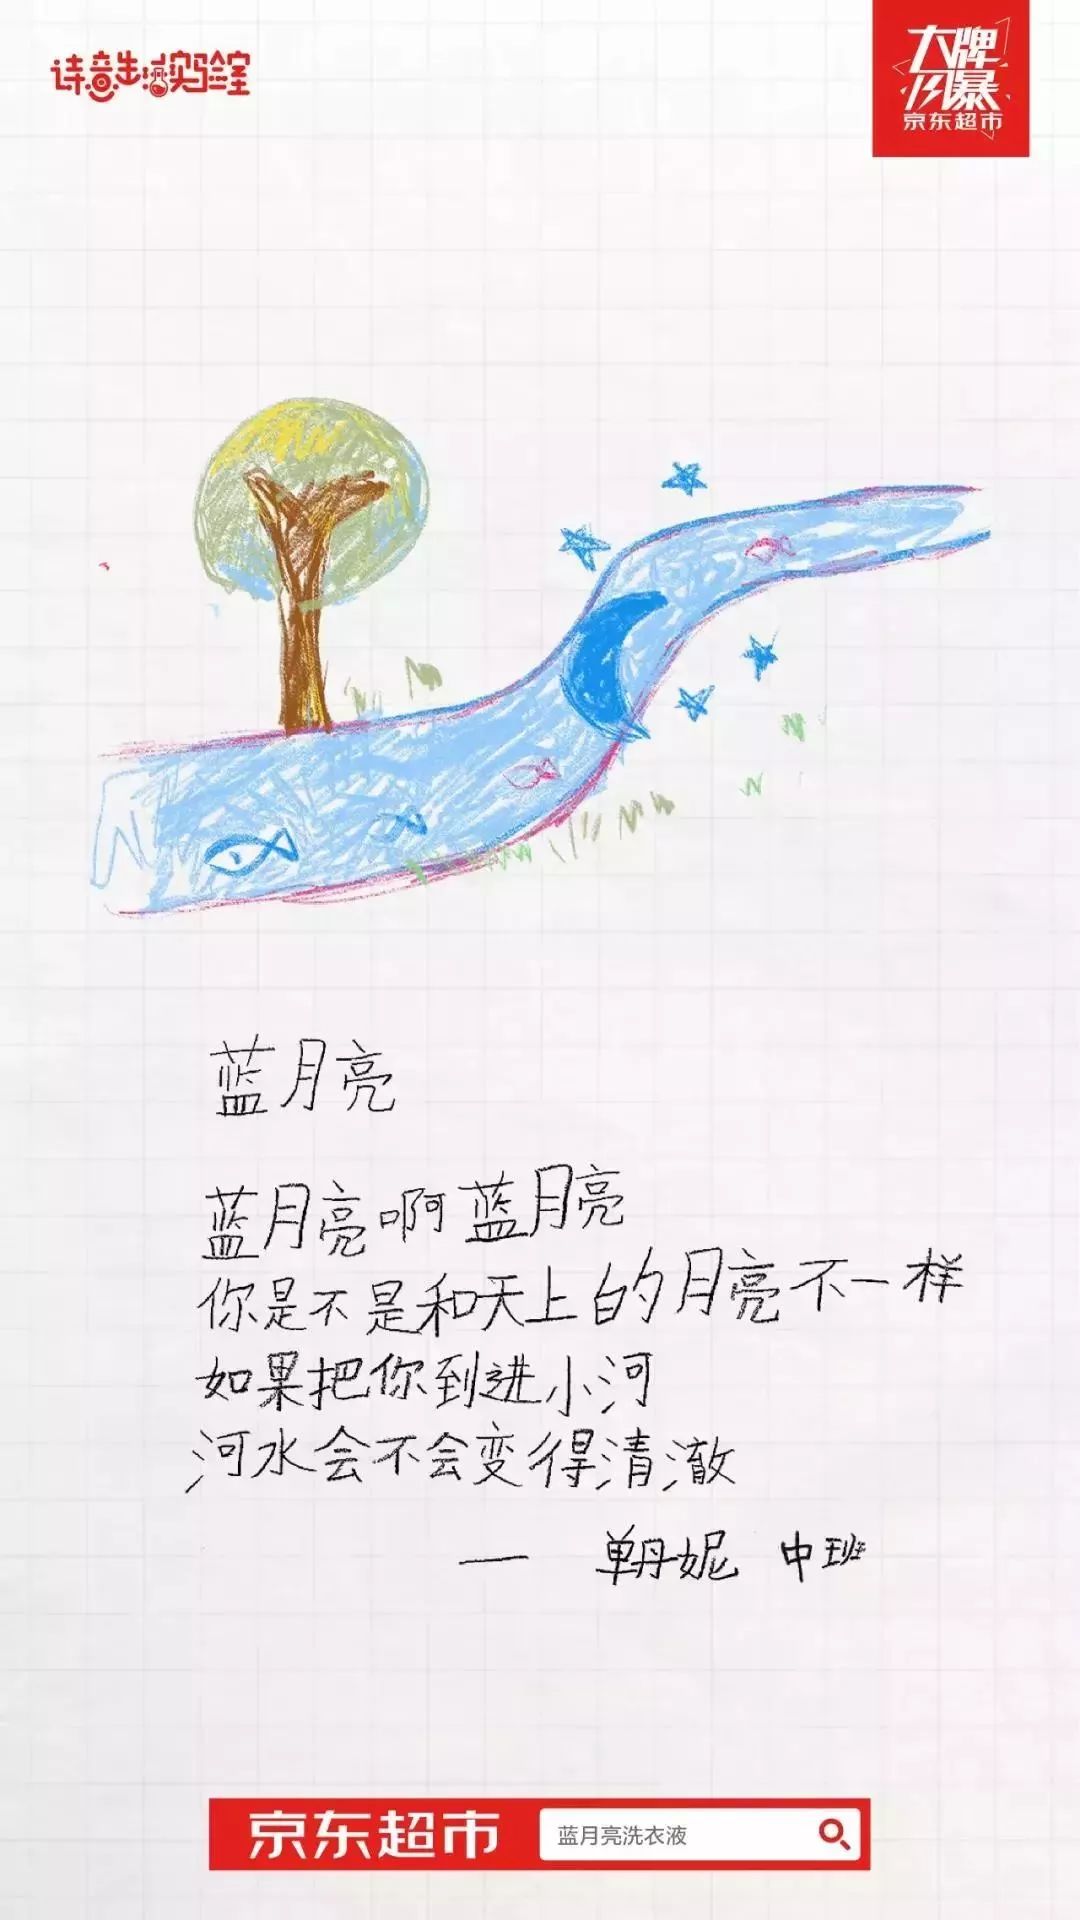 诗意生活实验室
大牌
风暴
京东超市
蓝月亮
蓝月亮啊蓝月亮
你是不是和天上的月亮不一样
如果把你到进小河
河水会不会变得清澈
— 单丹妮 中班
京东超市
蓝月亮洗衣液